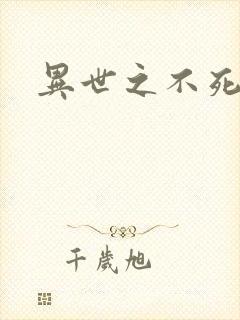 異世之不死
千歲旭